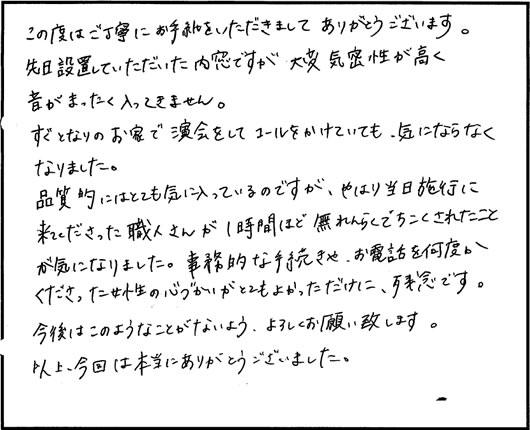 この度はご丁寧にお手紙をいただきまして ありがとうございます。
先日設置していただいた内窓ですが 大変 気密性が高く
音がまったく入ってきません。
すぐとなりのお家で 演会をして コールをかけていても、気にならなく
なりました。
品質的にはとても気に入っているのですが、やはり当日施行に
来てくださった職人さんが 1時間ほど 無れんらくでちこくされたこと
が気になりました。事務的な手続きや、お電話を何度か
くださった女性の心づかいがとてもよかっただけに、残念です。
今後はこのようなことがないよう、よろしくお願い致します。
以上、今回は本当にありがとうございました。